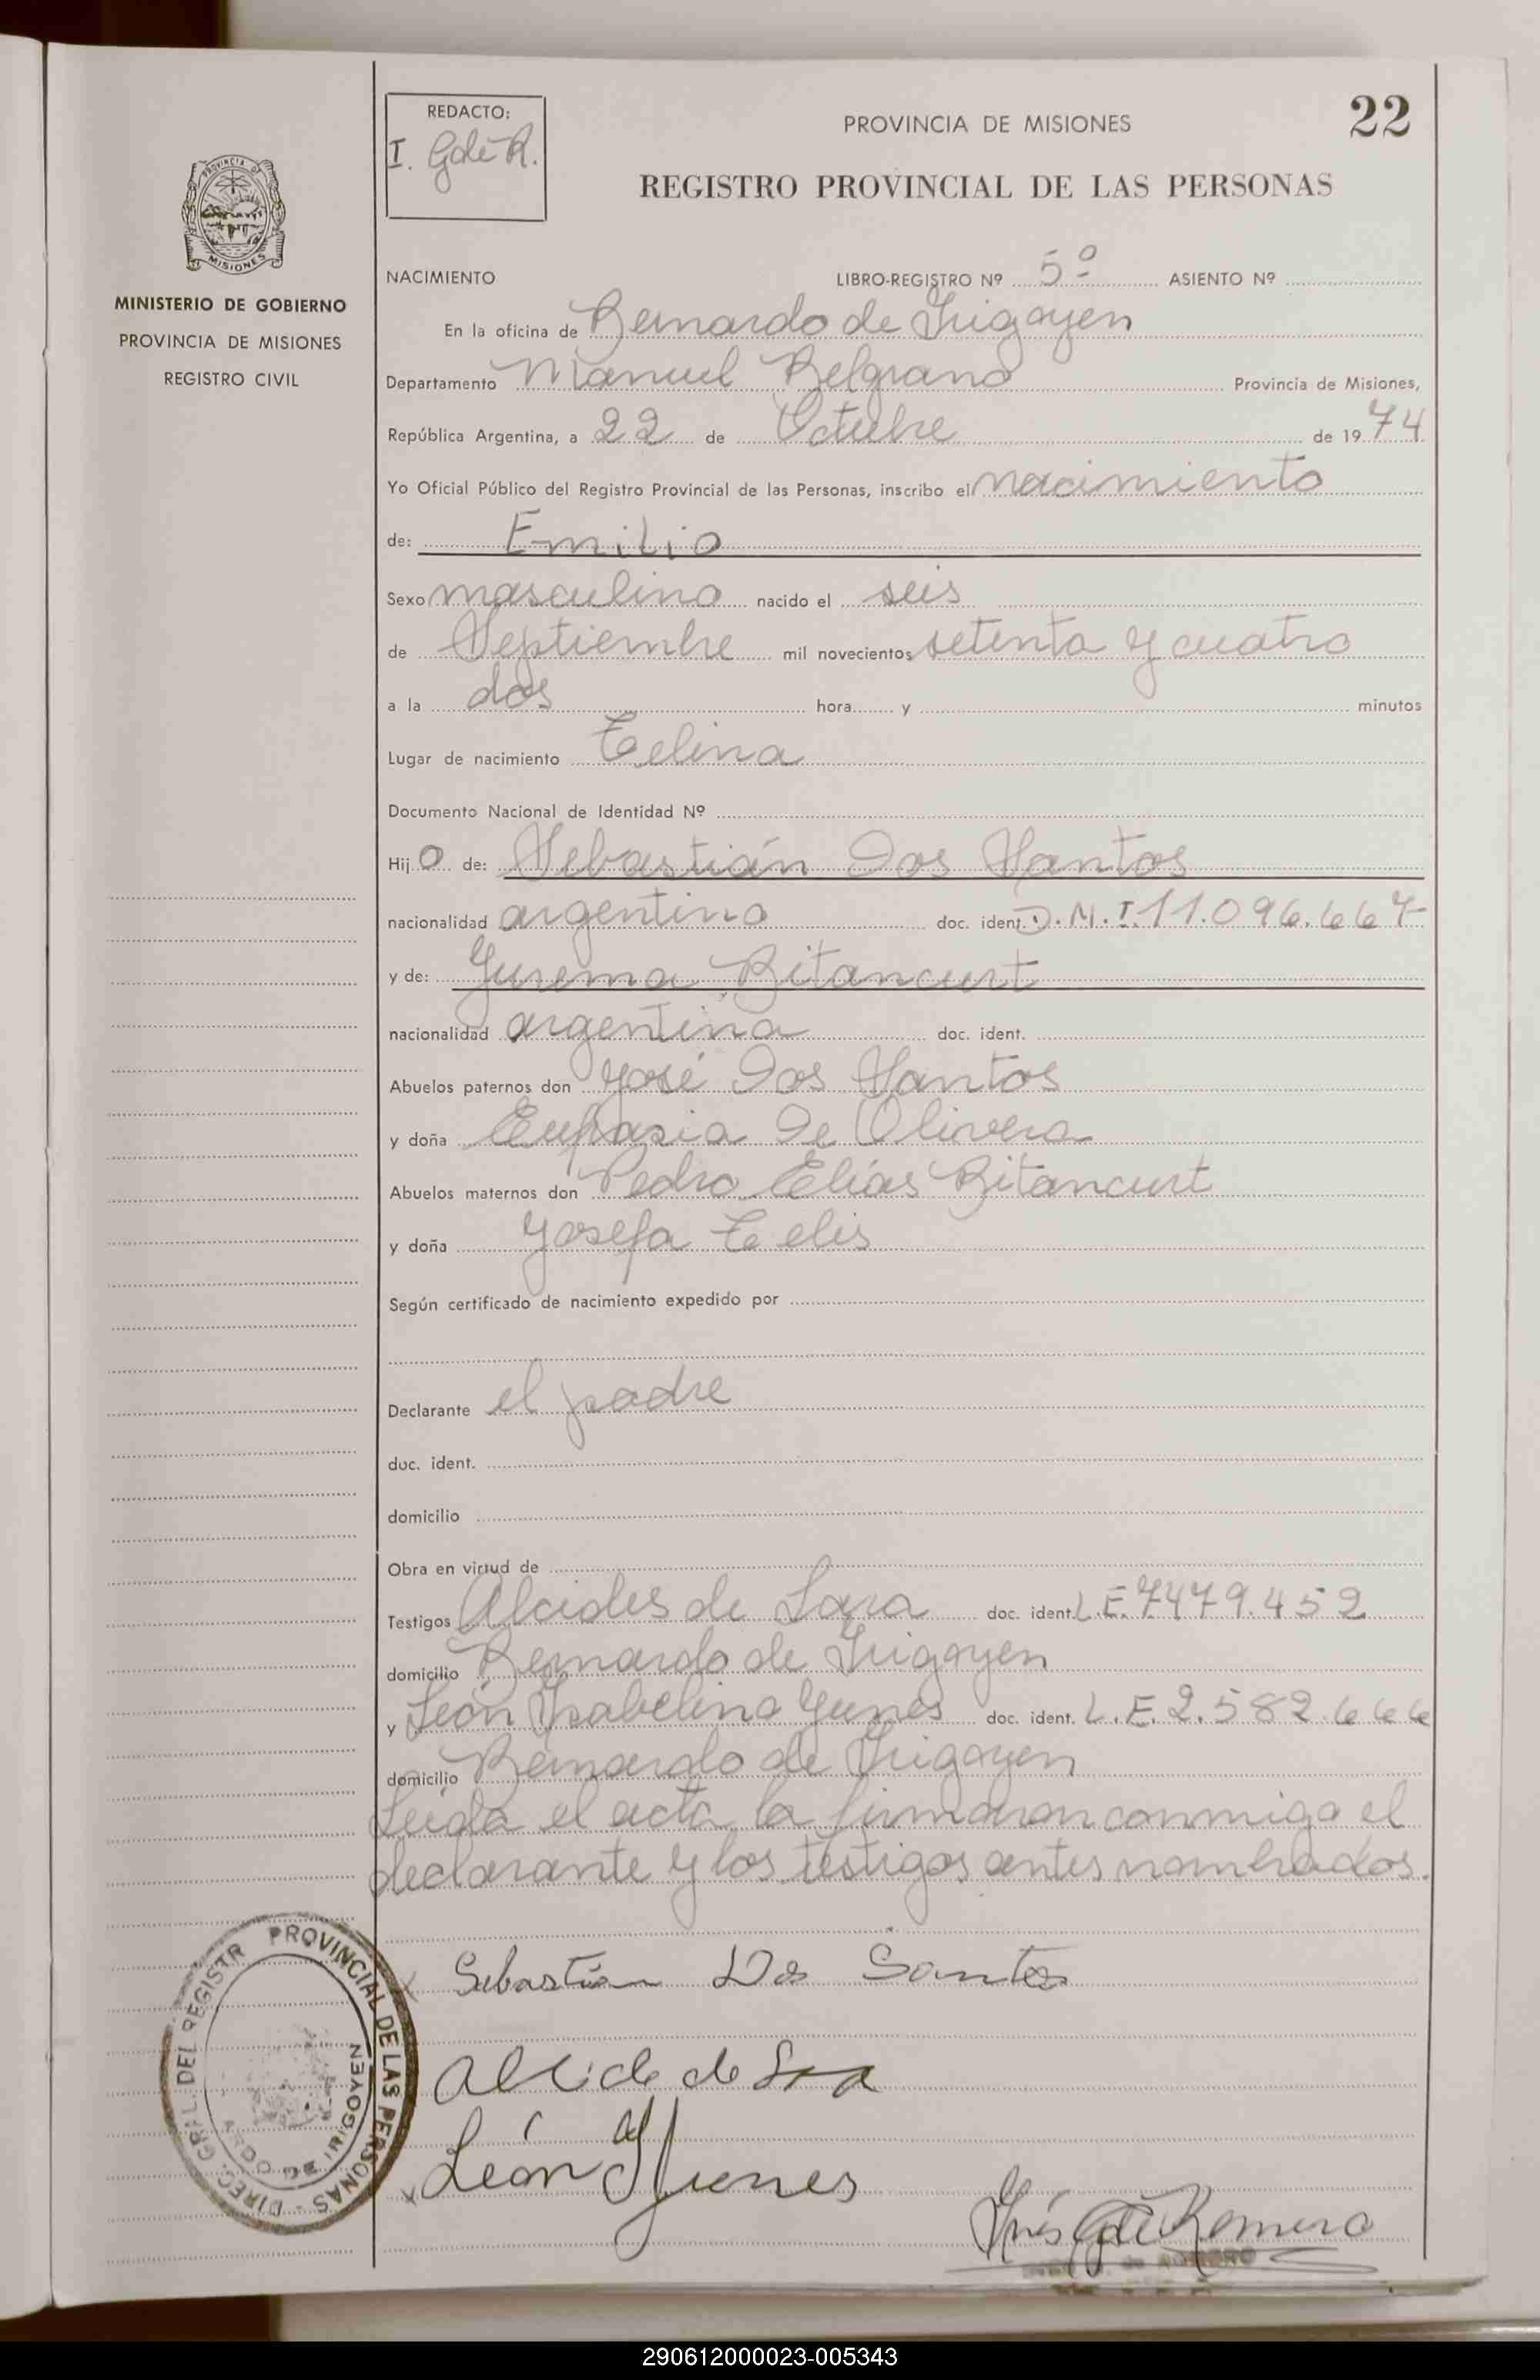 REDACTO:
I. Gde R.
PROVINCIA DE MISIONES
22
REGISTRO PROVINCIAL DE LAS PERSONAS
PROVINCIA DE
MISIONES
MINISTERIO DE GOBIERNO
PROVINCIA DE MISIONES
REGISTRO CIVIL
NACIMIENTO LIBRO-REGISTRO Nº 5º ASIENTO Nº
En la oficina de Bernardo de Irigoyen
Departamento Manuel Belgrano Provincia de Misiones,
República Argentina, a 22 de Octubre de 1974
Yo Oficial Público del Registro Provincial de las Personas, inscribo el nacimiento
de: Emilio
Sexo masculino nacido el seis
de Septiembre mil novecientos setenta y cuatro
a la dos hora y minutos
Lugar de nacimiento Celina
Documento Nacional de Identidad Nº
Hijo de: Sebastián Dos Santos
nacionalidad argentino doc. ident. D.N.I. 11.096.667
y de: Jurema Bitancurt
nacionalidad argentina doc. ident.
Abuelos paternos don José Dos Santos
y doña Eufrasia De Olivera
Abuelos maternos don Pedro Elías Bitancurt
y doña Josefa Telis
Según certificado de nacimiento expedido por
Declarante el padre
doc. ident.
domicilio
Obra en virtud de
Testigos Alcides de Lara doc. ident. L.E. 7479.452
domicilio Bernardo de Irigoyen
y León Isabelino Yunes doc. ident. L.E. 2.582.666
domicilio Bernardo de Irigoyen
Leída el acta la firmaron conmigo el
declarante y los testigos antes nombrados.
x Sebastian Dos Santos
Alcide de Lara
x León Yunes
Inés G de Romero
DIREC. GRAL. DEL REGISTR PROVINCIAL DE LAS PERSONAS
DE IRIGOYEN
290612000023-005343